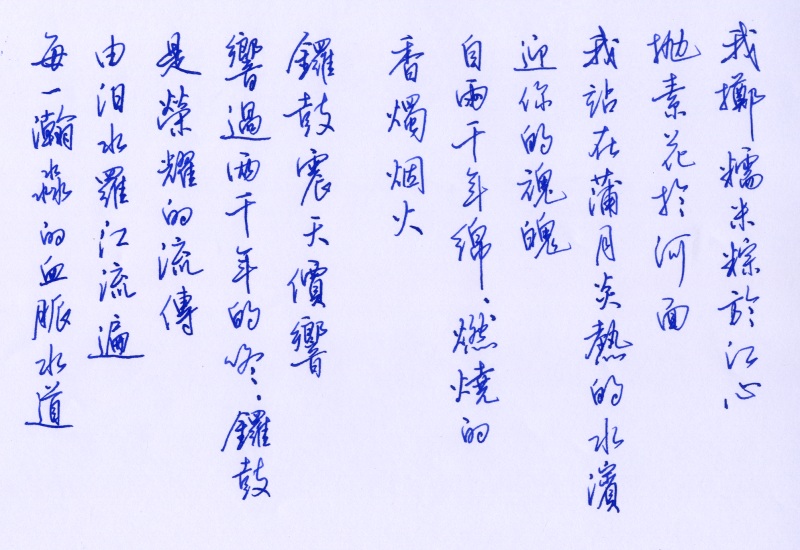 我擲糯米粽於江心
拋素花於河面
我站在蒲月炎熱的水濱
迎你的魂魄
自兩千年綿、燃燒的
香燭烟火
鑼鼓震天價響
響過兩千年的咚、鑼鼓
是榮耀的流傳
由汨水羅江流遍
每一瀚淼的血脈水道